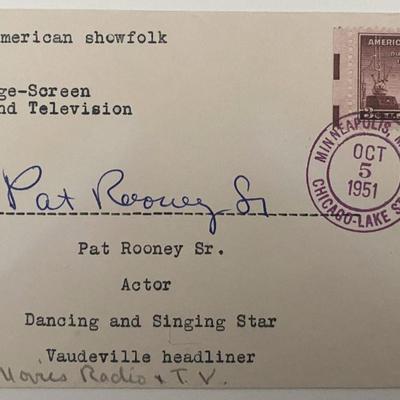 merican showfolk
AMERICA
ge-Screen
nd Television
MINNEAPOLIS, M
OCT
5
1951
CHICAGO-LAKE ST
Pat Rooney Sr
Pat Rooney Sr.
Actor
Dancing and Singing Star
Vaudeville headliner
Movies Radio + T.V.